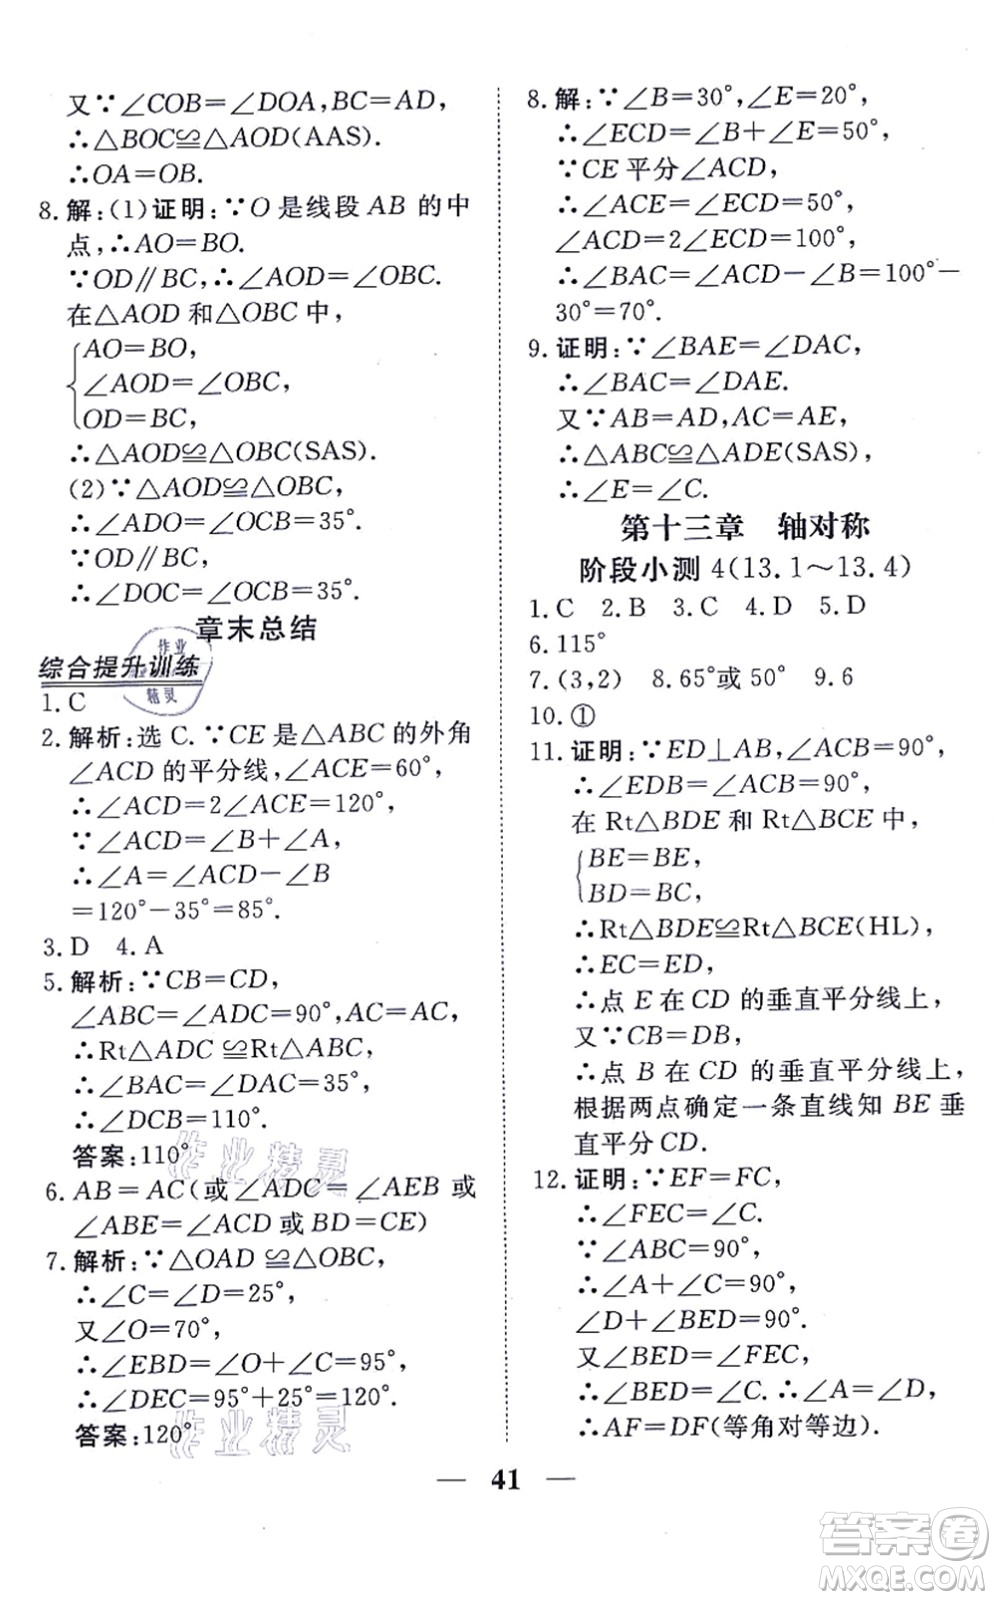 又∵∠COB=∠DOA,BC=AD,
∴△BOC≌△AOD(AAS).
∴OA=OB.
8.解:(1)证明:∵O是线段AB的中
点,∴AO=BO.
∵OD∥BC,∴∠AOD=∠OBC.
在△AOD和△OBC中,
AO=BO,
∠AOD=∠OBC,
OD=BC,
∴△AOD≌△OBC(SAS).
(2)∵△AOD≌△OBC,
∴∠ADO=∠OCB=35°.
∵OD∥BC,
∴∠DOC=∠OCB=35°.
章末总结
综合提升训练
1.C
2.解析:选C.∵CE是△ABC的外角
∠ACD的平分线,∠ACE=60°,
∴∠ACD=2∠ACE=120°,
∵∠ACD=∠B+∠A,
∴∠A=∠ACD-∠B
=120°-35°=85°.
3.D 4.A
5.解析:∵CB=CD,
∠ABC=∠ADC=90°,AC=AC,
∴Rt△ADC≌Rt△ABC,
∴∠BAC=∠DAC=35°,
∴∠DCB=110°.
答案:110°
6.AB=AC(或∠ADC=∠AEB或
∠ABE=∠ACD或BD=CE)
7.解析:∵△OAD≌△OBC,
∴∠C=∠D=25°,
又∠O=70°,
∴∠EBD=∠O+∠C=95°,
∴∠DEC=95°+25°=120°.
答案:120°
8.解:∵∠B=30°,∠E=20°,
∴∠ECD=∠B+∠E=50°,
∵CE平分∠ACD,
∴∠ACE=∠ECD=50°,
∠ACD=2∠ECD=100°,
∴∠BAC=∠ACD-∠B=100°-
30°=70°.
9.证明:∵∠BAE=∠DAC,
∴∠BAC=∠DAE.
又∵AB=AD,AC=AE,
∴△ABC≌△ADE(SAS),
∴∠E=∠C.
第十三章 轴对称
阶段小测4(13.1～13.4)
1.C 2.B 3.C 4.D 5.D
6.115°
7.(3,2) 8.65°或50° 9.6
10.①
11.证明:∵ED⊥AB,∠ACB=90°,
∴∠EDB=∠ACB=90°,
在Rt△BDE和Rt△BCE中,
BE=BE,
BD=BC,
∴Rt△BDE≌Rt△BCE(HL),
∴EC=ED,
∴点E在CD的垂直平分线上,
又∵CB=DB,
∴点B在CD的垂直平分线上,
根据两点确定一条直线知BE垂
直平分CD.
12.证明:∵EF=FC,
∴∠FEC=∠C.
∵∠ABC=90°,
∴∠A+∠C=90°,
∠D+∠BED=90°.
又∠BED=∠FEC,
∴∠BED=∠C.∴∠A=∠D,
∴AF=DF(等角对等边).
— 41 —
作业
精灵
作业精灵
作业精灵
答案卷
MXQE.COM